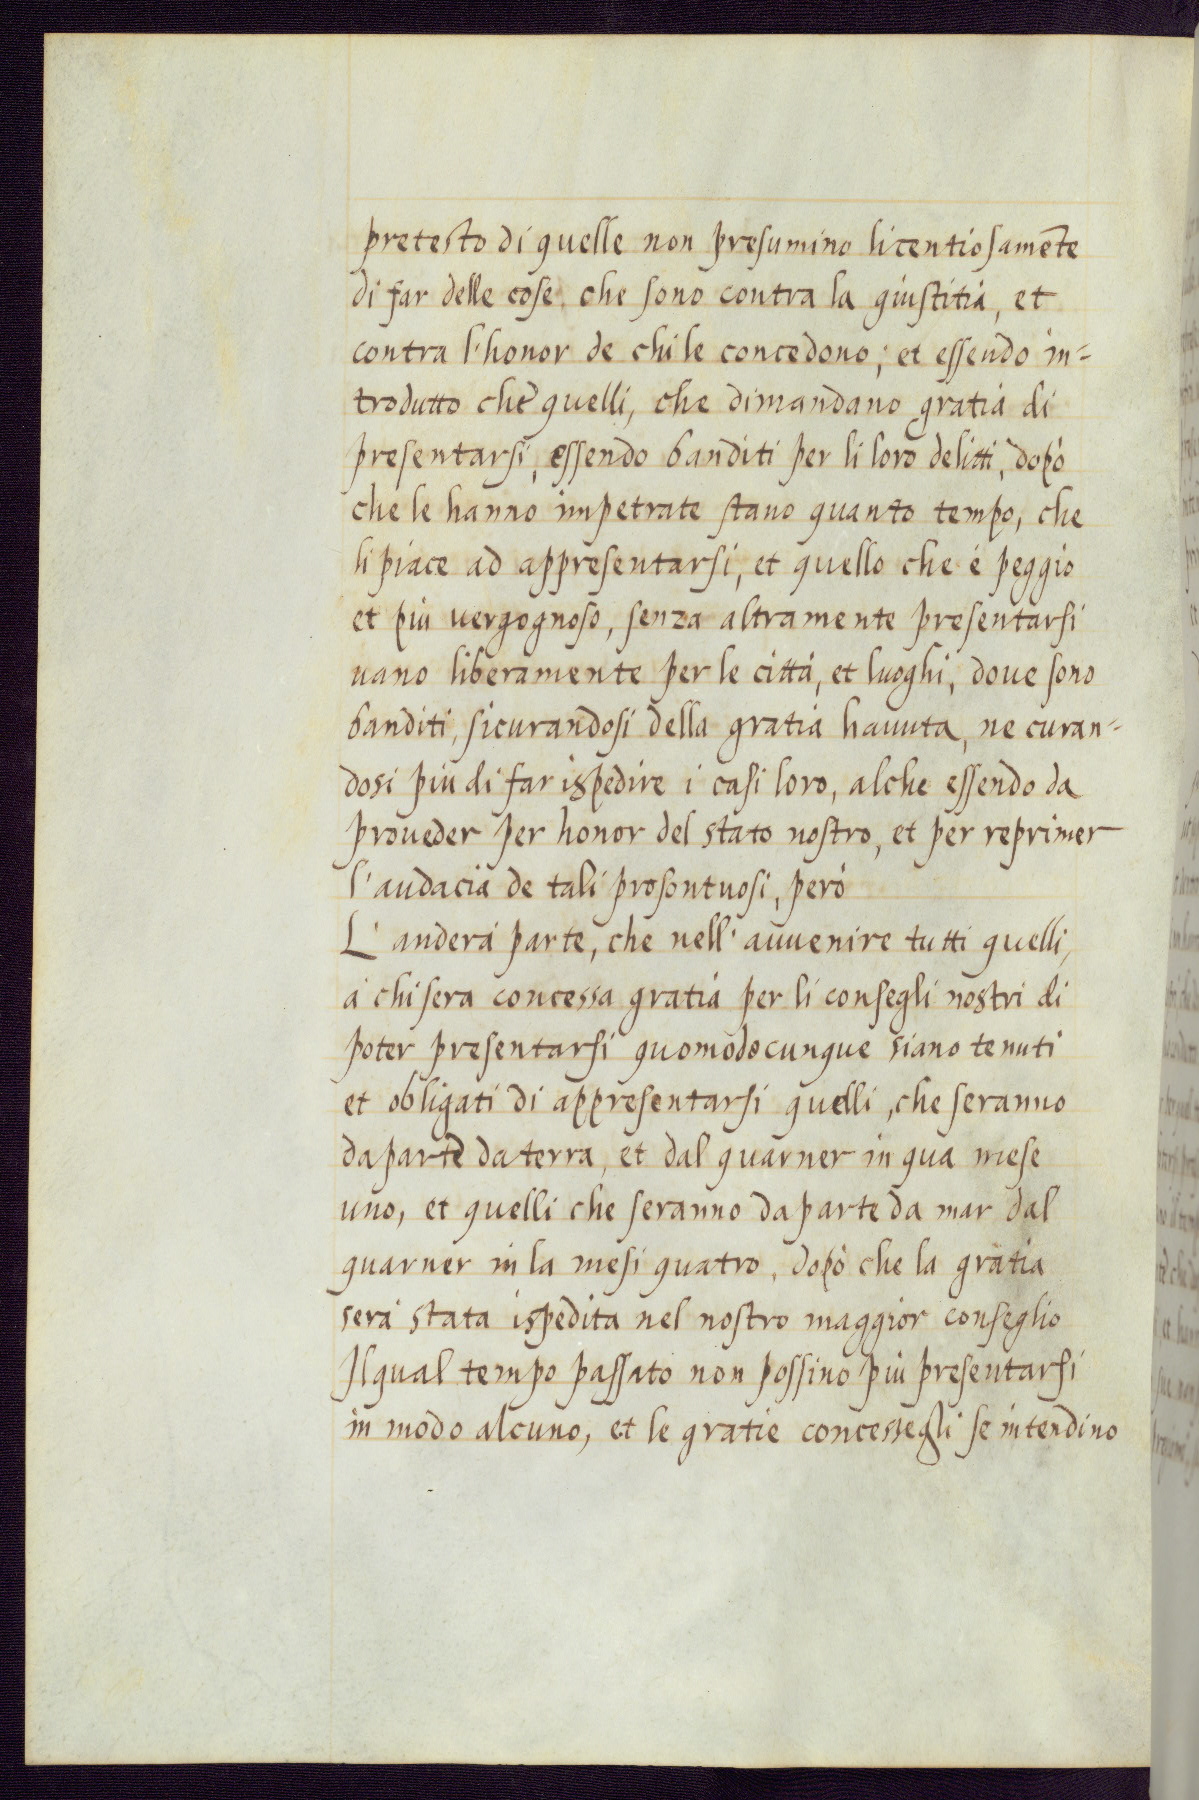 pretesto di quelle non presumino licentiosamēte
di far delle cose che sono contra la giustitia, et
contra l'honor de chi le concedono; et essendo in-
trodutto che quelli, che dimandano gratia di
presentarsi, essendo banditi per li loro delitti, dopò
che le hanno impetrate stano quanto tempo, che
li piace ad appresentarsi, et quello che è peggio
et più vergognoso, senza altramente presentarsi
vano liberamente per le città, et luoghi, doue sono
banditi, sicurandosi della gratia hauuta, ne curan-
dosi più di far ispedire i casi loro, alche essendo da
proueder per honor del stato nostro, et per reprimer
l'audacia de tali prosontuosi, però
L'anderà parte, che nell'auuenire tutti quelli,
à chi sera concessa gratia per li consegli nostri di
poter presentarsi quomodocunque siano tenuti
et obligati di appresentarsi quelli, che seranno
da parte da terra, et dal quarner in qua mese
uno, et quelli che seranno da parte da mar dal
quarner in la mesi quatro, dopò che la gratia
serà stata ispedita nel nostro maggior conseglio
Ilqual tempo passato non possino più presentarsi
in modo alcuno, et le gratie concessegli se intendino